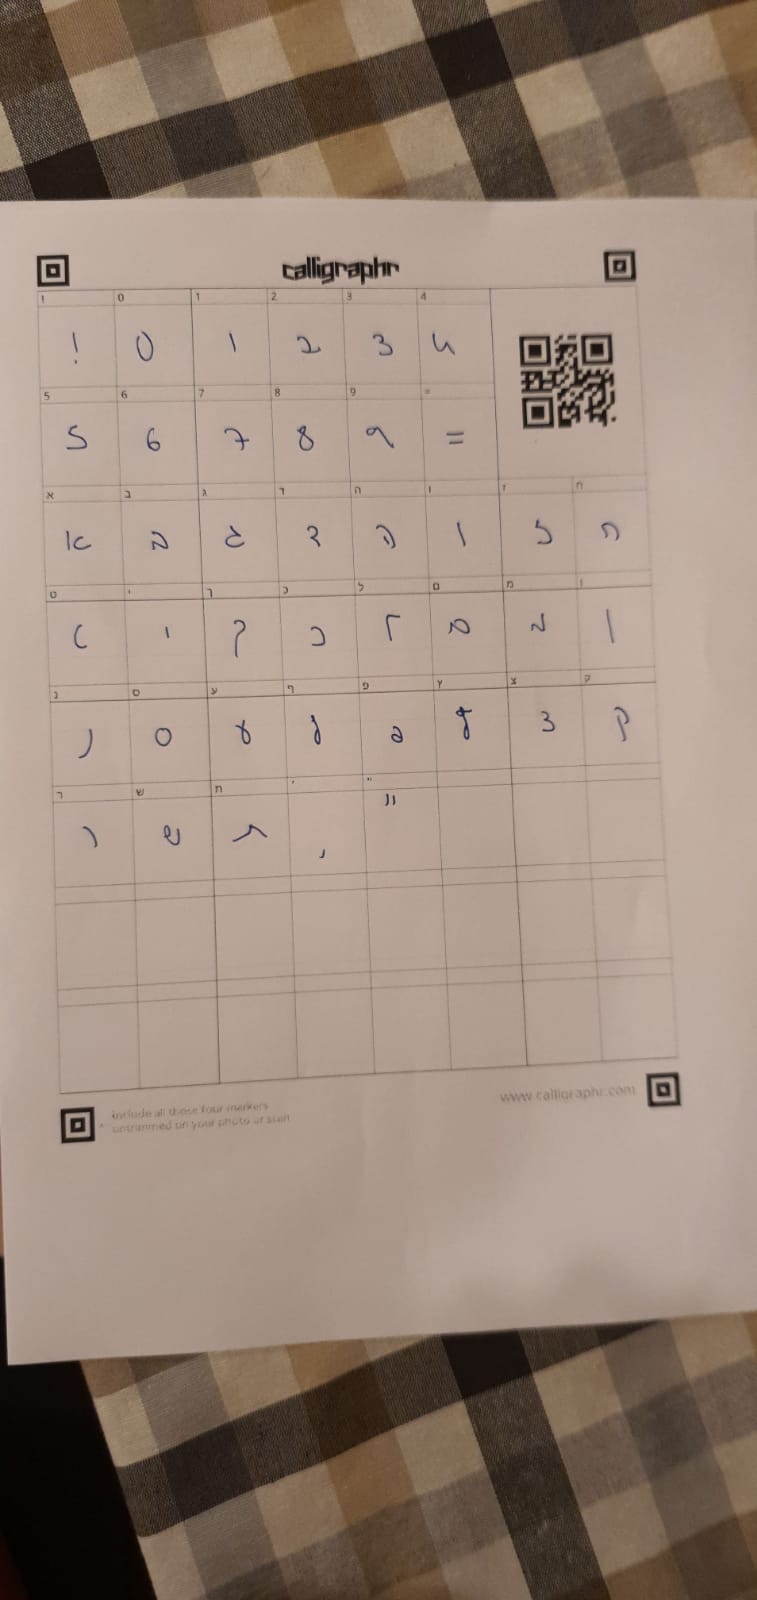 calligraphr
! 0 1 2 3 4
! 0 1 2 3 4
5 6 7 8 9 =
5 6 7 8 9 =
א ב ג ד ה ו ז ח
א ב ג ד ה ו ז ח
ט י ך כ ל ם מ ן
ט י ך כ ל ם מ ן
נ ס ע ף פ ץ צ ק
נ ס ע ף פ ץ צ ק
ר ש ת ' "
ר ש ת , "
include all these four markers
untrimmed on your photo or scan
www.calligraphr.com